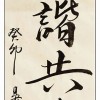 諧共
癸卯